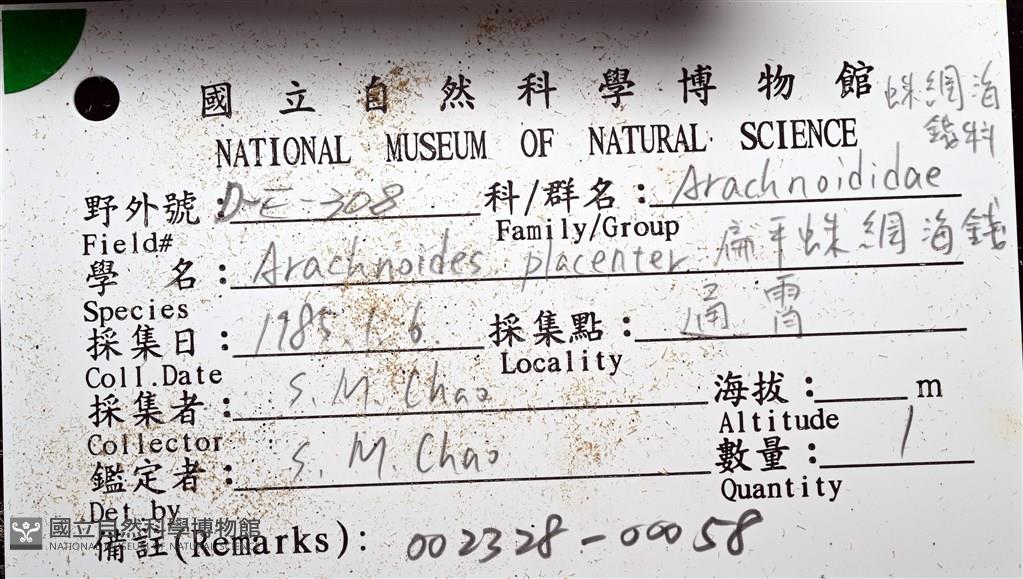 國立自然科學博物館 蛛網海
錢科
NATIONAL MUSEUM OF NATURAL SCIENCE
野外號：D-E-308 科/群名：Arachnoididae
Field# Family/Group
學名：Arachnoides placenter 扁平蛛網海錢
Species
採集日：1985.1.6. 採集點：通霄
Coll.Date Locality
採集者：S.M.Chao 海拔：m
Collector Altitude
鑑定者：S.M.Chao 數量：1
Det by Quantity
備註(Remarks)：002328-00058
國立自然科學博物館
NATIONAL MUSEUM OF NATURAL SCIENCE